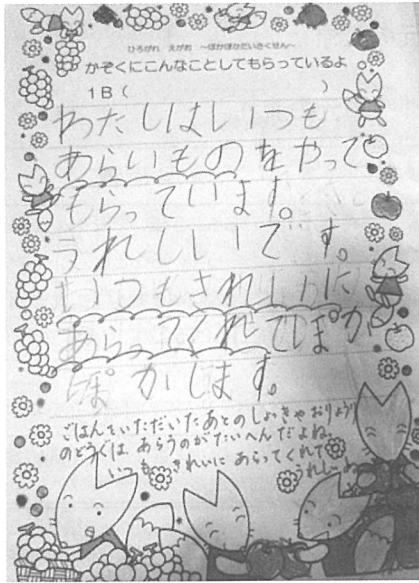 ひろがれ えがお ～ぽかぽかだいさくせん～
かぞくにこんなことしてもらっているよ
1B（ ）
わたしはいつも
あらいものをやって
もらっています。
うれしいです。
いつもきれいに
あらってくれてぽか
ぽかします。
ごはんをいただいたあとのしょっきやおりょうり
のどうぐは あらうのがたいへんだよね。
いつも きれいに あらってくれて
うれしいね